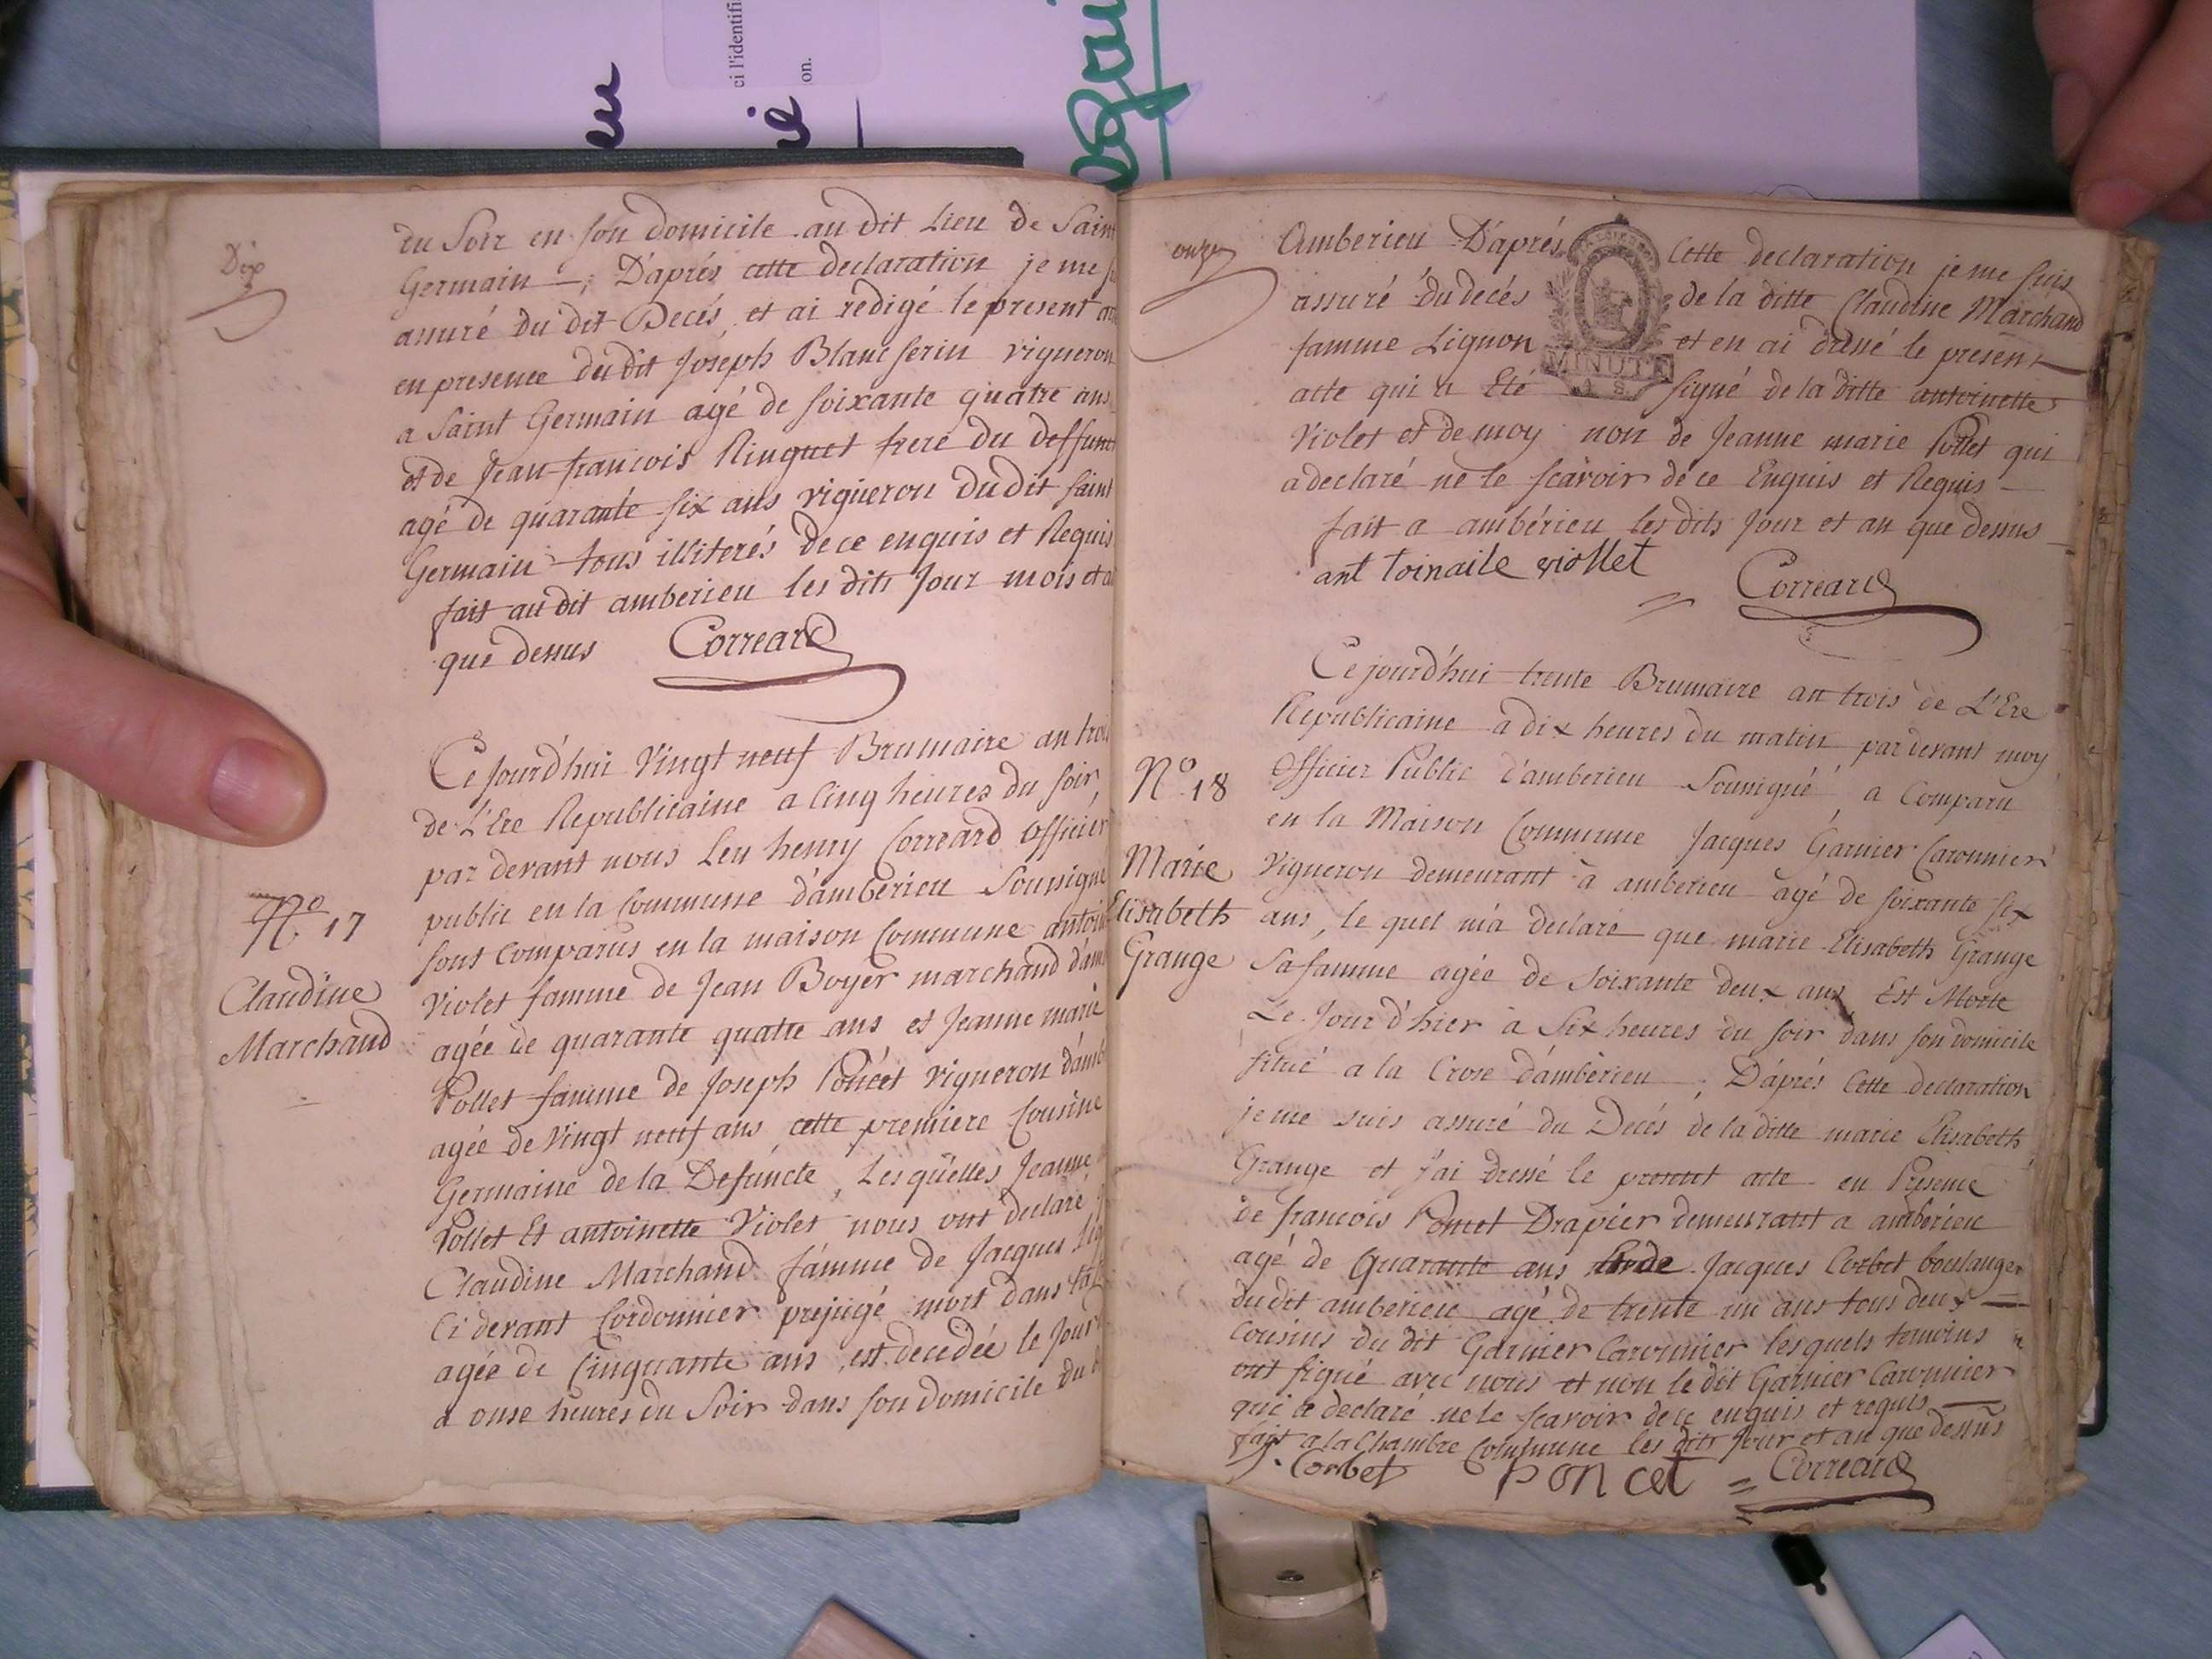 ci l'identifi
on.
Dix
du Soir en son domicile au dit Lieu de Saint
Germain —; D'aprés cette declaration je me
assuré du dit Decés, et ai redigé le present
en presence du dit Joseph Blanc ferin vigneron
a Saint Germain agé de soixante quatre ans
et de Jean francois Ringuet frere du deffunct
agé de quarante six ans vigneron du dit saint
Germain tous illiterés de ce enquis et Requis
fait au dit amberieu les dits Jour mois et
que dessus Correard
Ce jourd'hui Vingt neuf Brumaire an trois
de L'Ere Republicaine a Cinq heures du soir,
par devant nous Leu henry Correard officier
public en la Commune d'amberieu Soussigné
N.º 17
Claudine
Marchand
sont Comparus en la maison Commune
Violet famme de Jean Boyer marchand
agée de quarante quatre ans et Jeanne marie
Pollet famme de Joseph Poncet vigneron
agée de Vingt neuf ans, cette premiere Cousine
Germaine de la Defuncte, Lesquelles Jeanne
Pollet Et antoinette Violet nous ont declaré
Claudine Marchand famme de Jacques
Ci devant Cordonnier préjugé mort dans
agée de Cinquante ans, est decedée le Jour
a onse heures du Soir dans son domicile du
onze
Amberieu D'aprés Cette declaration je me suis
assuré du decés de la ditte Claudine Marchand
famme Lignon et en ai dressé le present
acte qui a Eté signé de la ditte antoinette
Violet et de moy non de Jeanne marie Pollet qui
a declaré ne le scavoir de ce Enquis et Requis —
fait a ambérieu les dits Jour et an que dessus
MINUTE
ant toinaite viollet Correard
Ce jourd'hui trente Brumaire an trois de L'Ere
Republicaine a dix heures du matin par devant moy
N.º 18
Marie
Elisabeth
Grange
officier Public d'amberieu Soussigné, a Comparu
en la Maison Commune Jacques Garnier Caronnier
Vigneron demeurant à amberieu agé de soixante six
ans, le quel m'a declaré que marie Elisabeth Grange
Sa famme agée de Soixante deux ans Est Morte
Le Jour d'hier a Six heures du soir dans son domicile
situé a la Crose d'ambérieu ; D'aprés Cette declaration
je me suis assuré du Decés de la ditte marie Elisabeth
Grange et j'ai dressé le present acte en Presence
de francois Poncet Drapier demeurant a amberieu
agé de Quarante ans et de Jacques Corbet boulanger
du dit amberieu agé de trente un ans tous deux —
Cousins du dit Garnier Caronnier lesquels temoins
ont signé avec nous et non le dit Garnier Caronnier
qui a declaré ne le scavoir de ce enquis et requis —
fait a la Chambre Commune les dits Jour et an que dessus
J. Corbet Poncet Correard